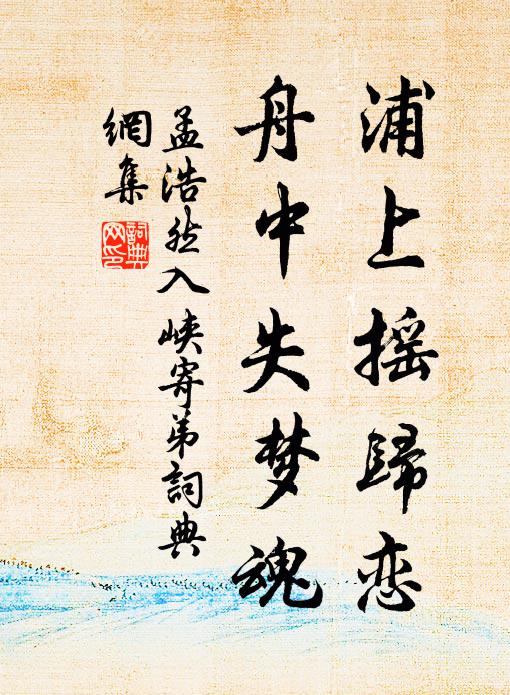 浦上摇歸恋
舟中失梦魂
孟浩然入峽寄弟詞典
網集
詞典
网印